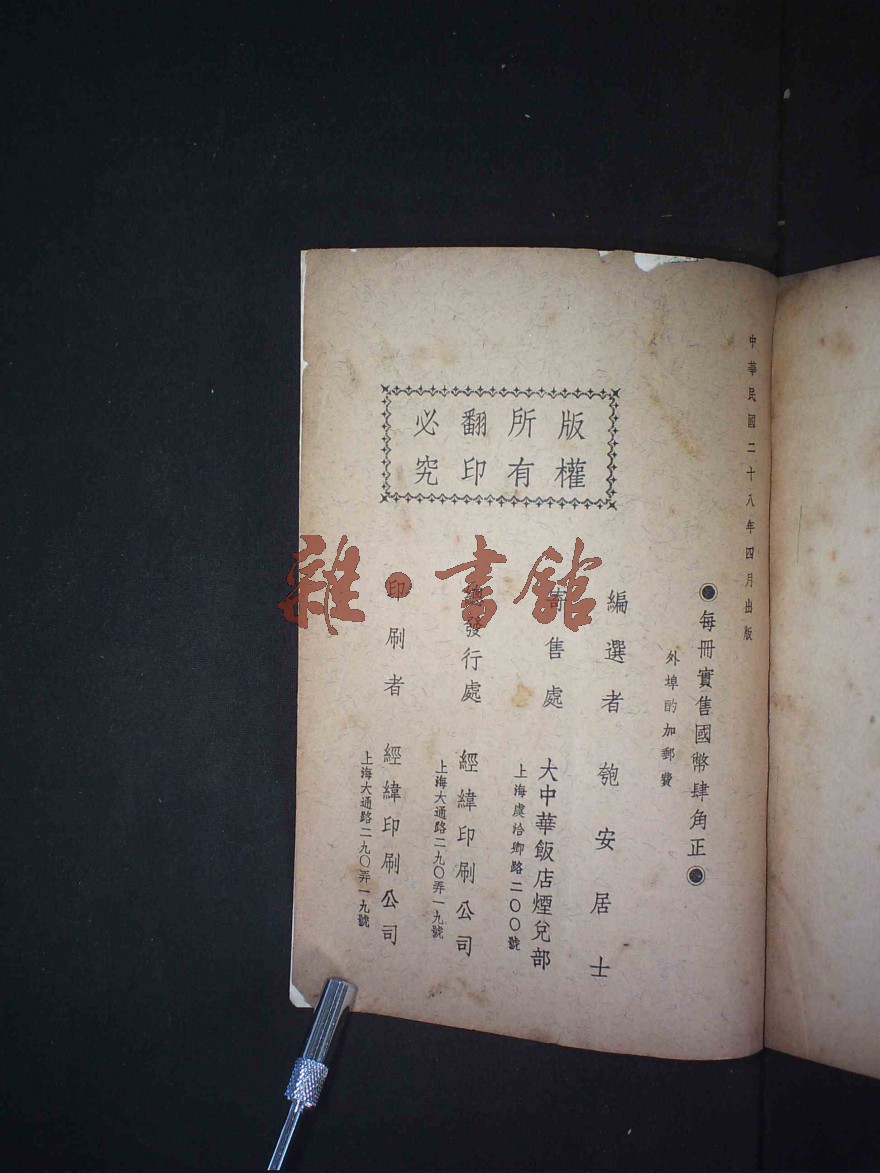 中華民國二十八年四月出版
◉每冊實售國幣肆角正◉
外埠酌加郵費
版權所有翻印必究
編選者 匏安居士
寄售處 大中華飯店煙兌部
上海虞洽卿路二〇〇號
總發行處 經緯印刷公司
上海大通路二九〇弄一九號
印刷者 經緯印刷公司
上海大通路二九〇弄一九號
雜·書館